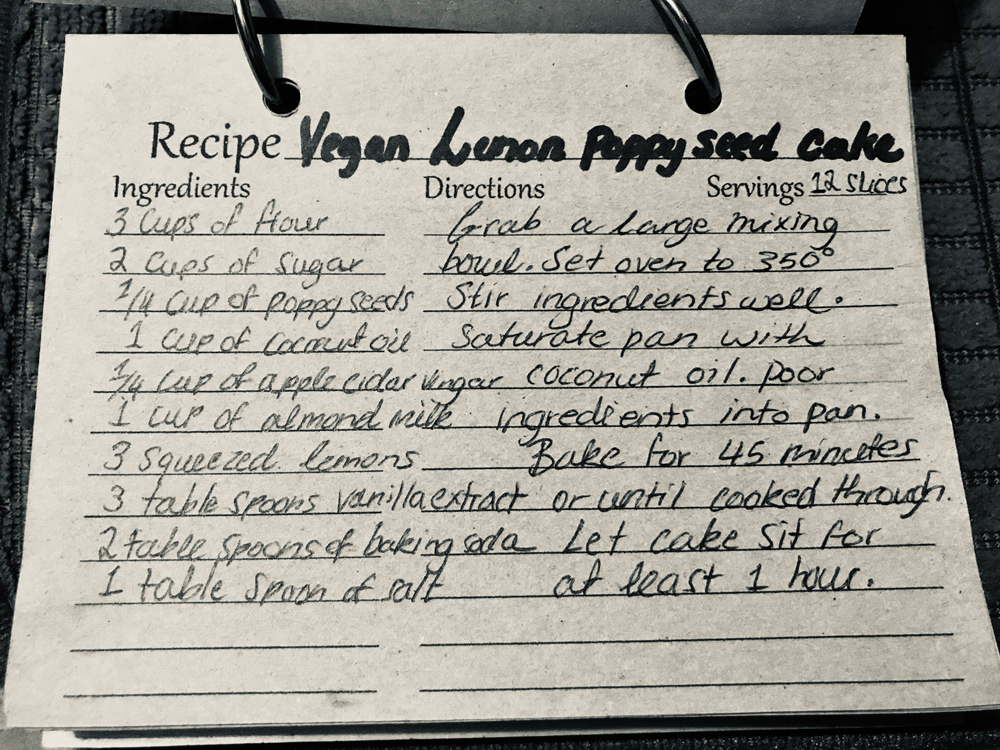 Recipe Vegan Lemon Poppy seed cake
Ingredients
3 Cups of flour
2 Cups of Sugar
1/4 Cup of poppy seeds
1 Cup of coconut oil
1/4 Cup of apple cidar vingar
1 cup of almond milk
3 squeezed lemons
3 table spoons vanilla extract
2 table spoons of baking soda
1 table spoon of salt
Directions
Servings 12 slices
Grab a large mixing
bowl. Set oven to 350°
Stir ingredients well.
Saturate pan with
coconut oil. Poor
ingredients into pan.
Bake for 45 minutes
or until cooked through.
Let cake sit for
at least 1 hour.